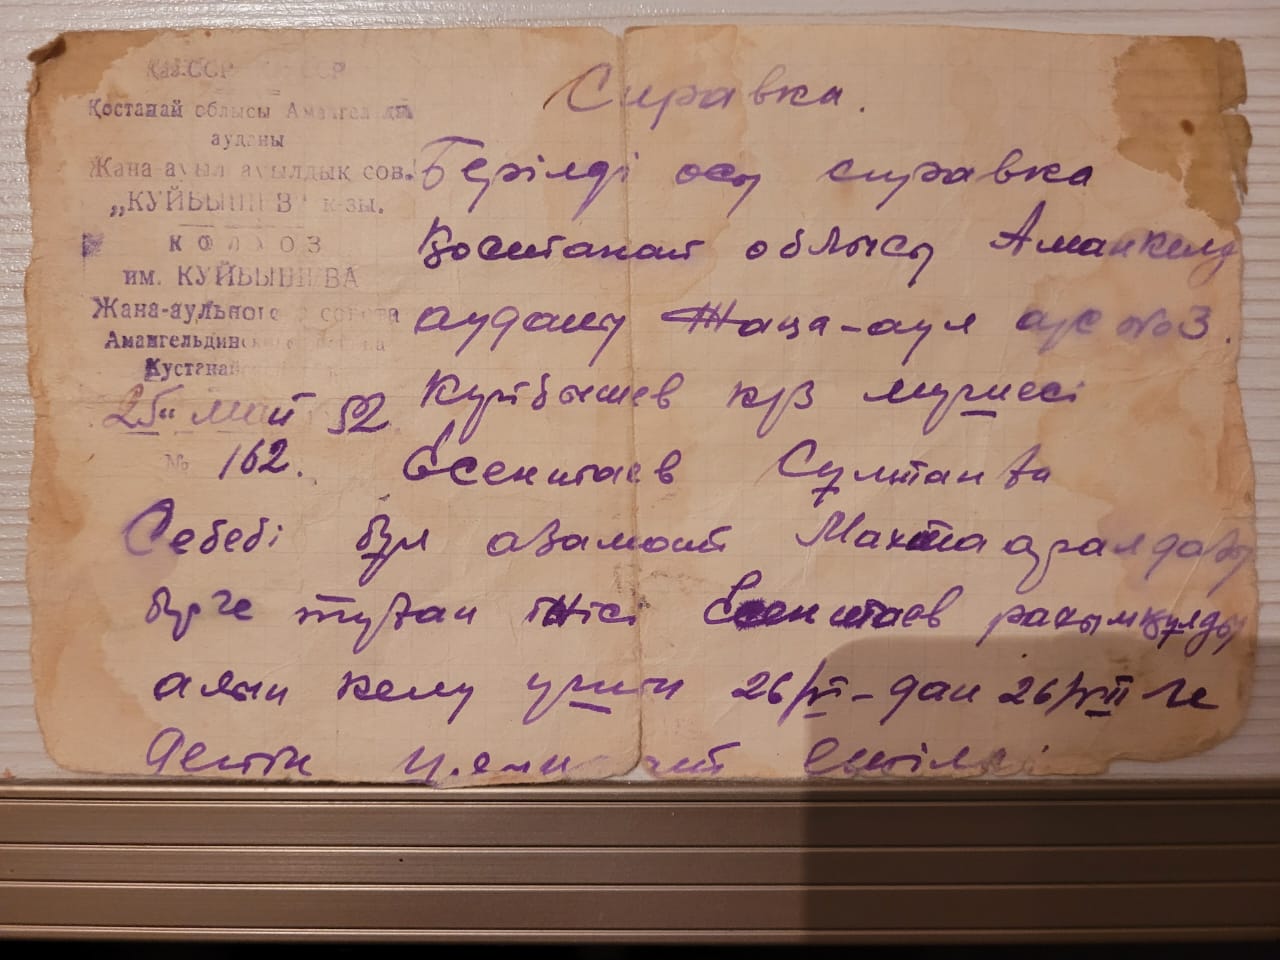 Қаз.ССР
Қостанай облысы Амангелді
ауданы
Жана ауыл ауылдық сов.
„КУЙБЫШЕВ" к-зы.
КОЛХОЗ
им. КУЙБЫШЕВА
Жана-аульного совета
Амангельдинского
Кустанай
25 " май 52
№ 162.
Справка.
Берілді осы справка
Қостанай облысы Аманкелд
ауданы Жаңа-аул а/с №3.
Куйбышев к/з мүшесі
Есентаев Сұлтанға
Себебі бұл азамат Махтааралдағы
бірге туған інісі Есентаев рахымқұлды
алып келу үшін 26/VI-дан 26/VII ге
дейін